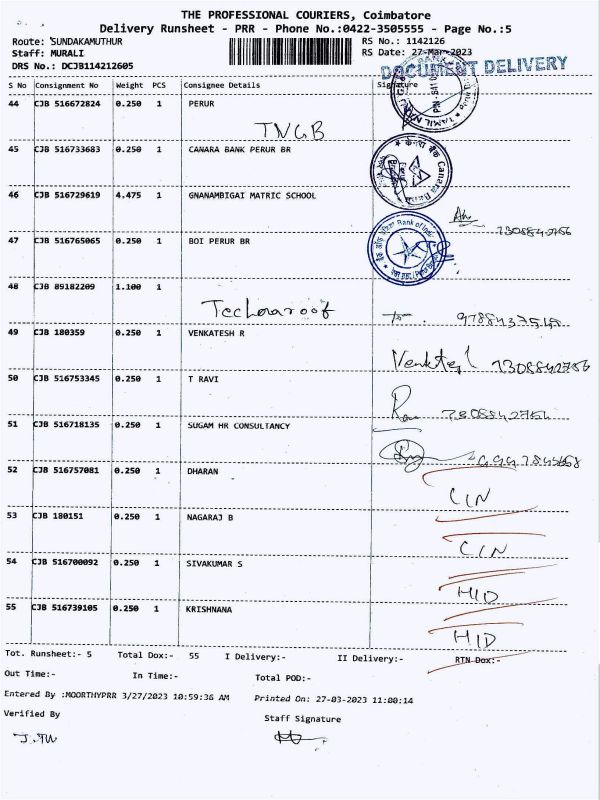 THE PROFESSIONAL COURIERS, Coimbatore
Delivery Runsheet - PRR - Phone No.:0422-3505555 - Page No.:5
Route: SUNDAKAMUTHUR RS No.: 1142126
Staff: MURALI RS Date: 27-Mar-2023
DRS No.: DCJB114212605
DOCUMENT DELIVERY
S No Consignment No Weight PCS Consignee Details Signature
44 CJB 516672824 0.250 1 PERUR
TNGB
45 CJB 516733683 0.250 1 CANARA BANK PERUR BR
केनरा बैंक Canara Bank
46 CJB 516729619 4.475 1 GNANAMBIGAI MATRIC SCHOOL
7308842756
47 CJB 516765065 0.250 1 BOI PERUR BR
Bank of India
48 CJB 89182209 1.100 1
49 CJB 180359 0.250 1 VENKATESH R
7308842756
50 CJB 516753345 0.250 1 T RAVI
51 CJB 516718135 0.250 1 SUGAM HR CONSULTANCY
52 CJB 516757081 0.250 1 DHARAN
CIN
53 CJB 180151 0.250 1 NAGARAJ B
CIN
54 CJB 516700092 0.250 1 SIVAKUMAR S
HID
55 CJB 516739105 0.250 1 KRISHNANA
HID
Tot. Runsheet:- 5 Total Dox:- 55 I Delivery:- II Delivery:- RTN Dox:-
Out Time:- In Time:- Total POD:-
Entered By :MOORTHYPRR 3/27/2023 10:59:36 AM Printed On: 27-03-2023 11:00:14
Verified By Staff Signature